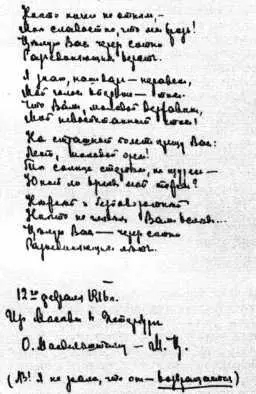 Никто ничего не отнял, —
Мне сладостно, что мы врозь!
Целую Вас через сотни
Разъединяющих верст.
Я знаю, наш дар — неравен,
Мой голос впервые — тих.
Что Вам, молодой Державин,
Мой невоспитанный стих!
На страшный полет крещу Вас:
Лети, молодой орел!
Ты солнце стерпел, не щурясь —
Юный ли взгляд мой тяжел?
Нежней и бесповоротней
Никто не глядел Вам вслед...
Целую Вас — через сотни
Разъединяющих лет.
12го февраля 1916г.
Из Москвы в Петербург
О. Мандельштаму — М. Ц.
(NB! Я не знала, что он — возвращается)